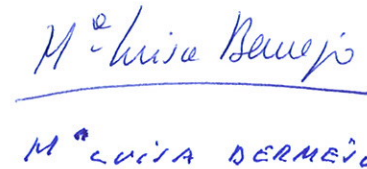 Mª Luisa Bermejo
Mª LUISA BERMEJO